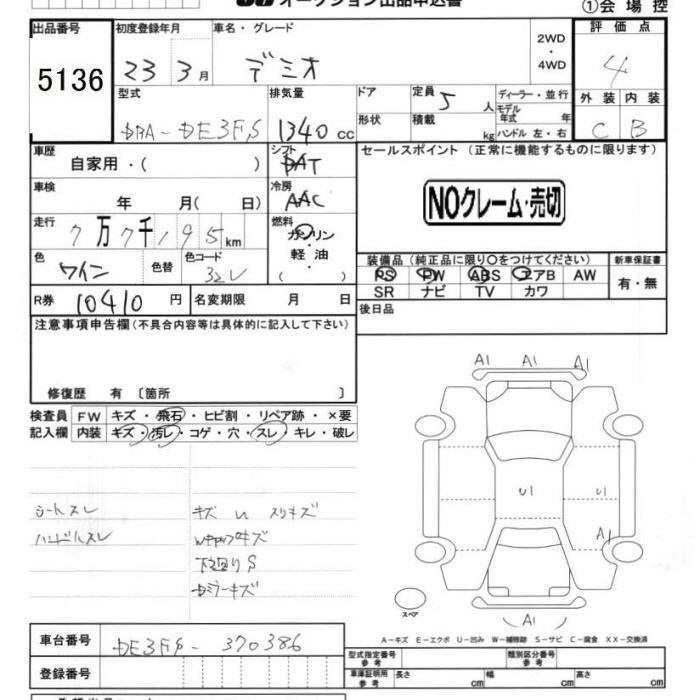 オークション出品申込書
①会場控
出品番号 5136
初度登録年月 23 3月
車名・グレード デミオ
2WD・4WD
評価点 4
外装 C 内装 B
型式 DBA-DE3FS
排気量 1340 cc
ドア 形状
定員 5 人
積載 kg
ディーラー・並行
モデル年式 年
ハンドル 左・右
車歴 自家用・( )
シフト AT
セールスポイント(正常に機能するものに限ります)
NOクレーム・売切
車検 年 月( 日)
冷房 AAC
走行 7万7千195km
燃料 ガソリン 軽油 ( )
色 ワイン 色替
色コード 32V
装備品(純正品に限り〇をつけてください)
PS PW ABS エアB AW
SR ナビ TV カワ
新車保証書 有・無
R券 10410 円
名変期限 月 日
後日品
注意事項申告欄(不具合内容等は具体的に記入して下さい)
修復歴 有〔箇所 〕
検査員記入欄
FW キズ・飛石・ヒビ割・リペア跡・×要
内装 キズ・汚レ・コゲ・穴・スレ・キレ・破レ
シートスレ
ハンドルスレ
キズ U スリキズ
下廻りS
A1 A1 A1
U1 U1
A1
(A1)
スペア
A-キズ E-エクボ U-凹み W-補修跡 S-サビ C-腐食 XX-交換済
車台番号 DE3FS-370386
登録番号
型式指定番号 参考
類別区分番号 参考
車庫証明用 参考 長さ cm 幅 cm 高さ cm